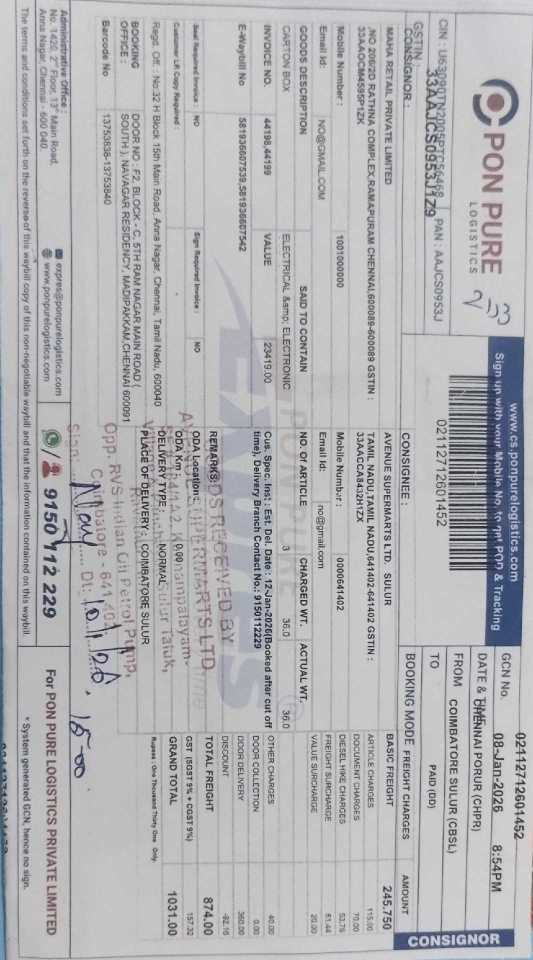 PON PURE
LOGISTICS
CIN : U63090TN2005PTC56468 PAN : AAJCS0953J
GSTIN : 33AAJCS0953J1Z9
www.cs.ponpurelogistics.com
Sign up with your Mobile No. to get POD & Tracking
02112712601452
GCN No. 02112712601452
DATE & TIME 08-Jan-2026 8:54PM
FROM CHENNAI PORUR (CHPR)
TO COIMBATORE SULUR (CBSL)
BOOKING MODE PAID (DD)
CONSIGNOR
CONSIGNOR :
MAHA RETAIL PRIVATE LIMITED
,NO 206/2D RATHNA COMPLEX,RAMAPURAM CHENNAI,600089-600089 GSTIN :
33AAOCM4595P1ZK
Mobile Number : 1001000000
Email Id: NO@GMAIL.COM
CONSIGNEE :
AVENUE SUPERMARTS LTD. SULUR
TAMIL NADU,TAMIL NADU,641402-641402 GSTIN :
33AACCA8432H1ZX
Mobile Number: 0000641402
Email Id: no@gmail.com
GOODS DESCRIPTION SAID TO CONTAIN NO OF ARTICLE CHARGED WT. ACTUAL WT.
CARTON BOX ELECTRICAL &amp; ELECTRONIC 3 36.0 36.0
INVOICE NO. 44198,44199 VALUE 23419.00
E-Waybill No 581936607539,581936607542
Cus. Spec. Inst: : Est. Del. Date : 12-Jan-2026(Booked after cut off
time), Delivery Branch Contact No.: 9150112229
Seal Required Invoice : NO Sign Required Invoice : NO
Customer LR Copy Required : -
Regd. Off. : No:32 H Block 15th Main Road, Anna Nagar, Chennai, Tamil Nadu, 600040
BOOKING OFFICE : DOOR NO : F2, BLOCK - C, 5TH RAM NAGAR MAIN ROAD (
SOUTH ), NAVAGAR RESIDENCY, MADIPAKKAM,CHENNAI 600091
Barcode No 13753838-13753840
REMARKS:
ODA Location:
ODA Km : 0.00
DELIVERY TYPE : NORMAL
PLACE OF DELIVERY : COIMBATORE SULUR
GOODS RECEIVED BY
AVENUE SUPERMARTS LTD
Sulur Taluk,
Opp. RVS Indian Oil Petrol Pump,
Coimbatore - 641 402
Sign: Dt: 10/1/26.
15-00
FREIGHT CHARGES AMOUNT
BASIC FREIGHT 245.750
ARTICLE CHARGES 115.00
DOCUMENT CHARGES 70.00
DIESEL HIKE CHARGES 53.76
FREIGHT SURCHARGE 61.44
VALUE SURCHARGE 20.00
OTHER CHARGES 40.00
DOOR COLLECTION 0.00
DOOR DELIVERY 360.00
DISCOUNT -92.16
TOTAL FREIGHT 874.00
GST (SGST 9% + CGST 9%) 157.32
GRAND TOTAL 1031.00
Rupees : One Thousand Thirty One Only
Administrative Office :
No. 1420, 2nd Floor, 13th Main Road,
Anna Nagar, Chennai - 600 040
expres@ponpurelogistics.com
www.ponpurelogistics.com
9150 112 229
For PON PURE LOGISTICS PRIVATE LIMITED
The terms and conditions set forth on the reverse of this waybill copy of this non-negotiable waybill and that the information contained on this waybill.
* System generated GCN, hence no sign.